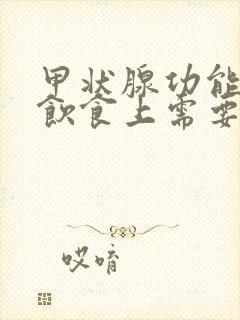 甲状腺功能
飲食上需要
哎唷